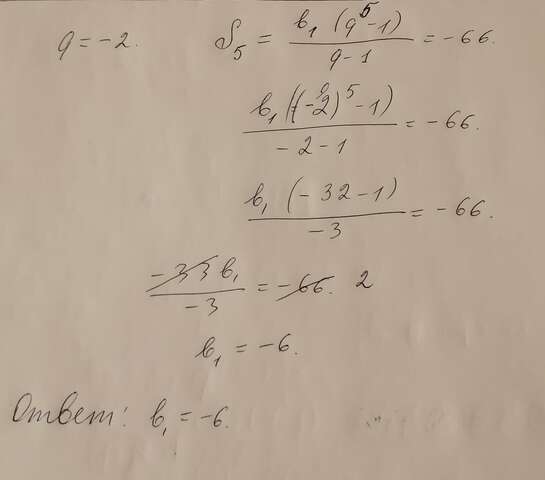 q = -2. S₅ = b₁ (q⁵ - 1) / q - 1 = -66.
b₁ ((-2)⁵ - 1) / -2 - 1 = -66.
b₁ (-32 - 1) / -3 = -66.
-33 b₁ / -3 = -66. 2
b₁ = -6.
Ответ: b₁ = -6.